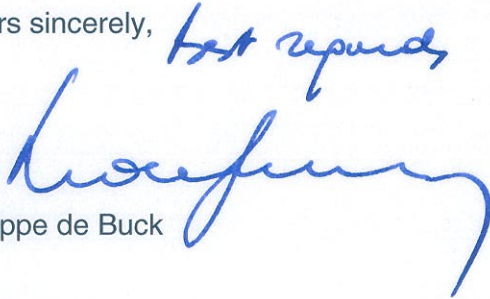 rs sincerely, best regards
ppe de Buck